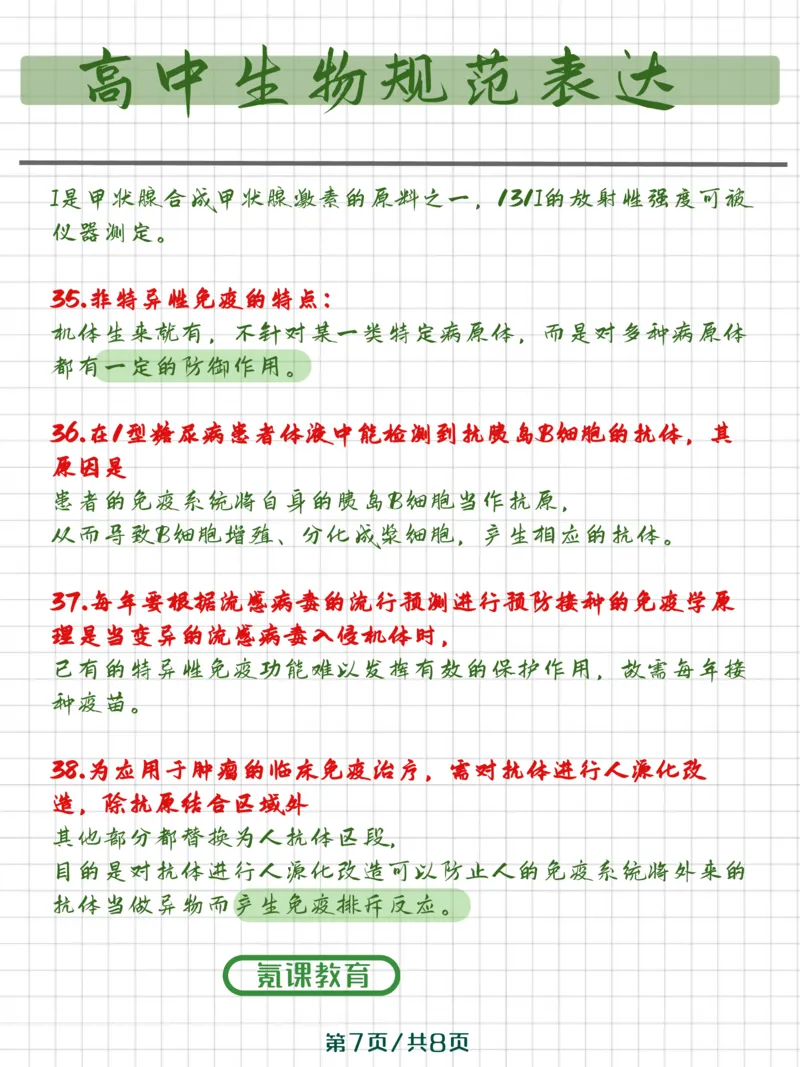 高中生物规范表达
I是甲状腺合成甲状腺激素的原料之一，131I的放射性强度可被
仪器测定。
35.非特异性免疫的特点：
机体生来就有，不针对某一类特定病原体，而是对多种病原体
都有一定的防御作用。
36.在1型糖尿病患者体液中能检测到抗胰岛B细胞的抗体，其
原因是
患者的免疫系统将自身的胰岛B细胞当作抗原，
从而导致B细胞增殖、分化成浆细胞，产生相应的抗体。
37.每年要根据流感病毒的流行预测进行预防接种的免疫学原
理是当变异的流感病毒入侵机体时，
已有的特异性免疫功能难以发挥有效的保护作用，故需每年接
种疫苗。
38.为应用于肿瘤的临床免疫治疗，需对抗体进行人源化改
造，除抗原结合区域外
其他部分都替换为人抗体区段，
目的是对抗体进行人源化改造可以防止人的免疫系统将外来的
抗体当做异物而产生免疫排斥反应。
氪课教育
第7页/共8页